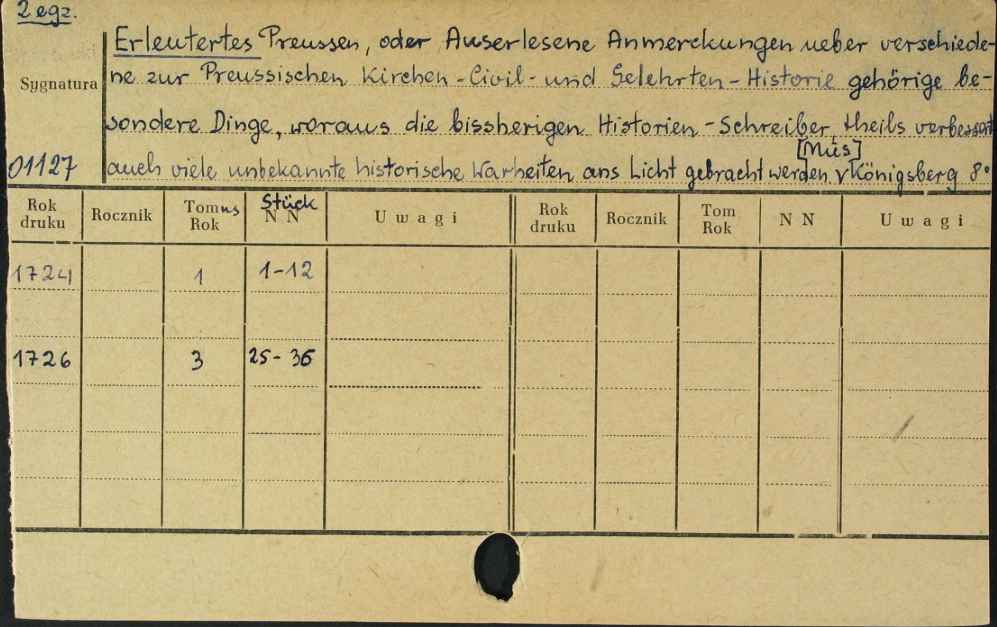 2 egz.
Erleutertes Preussen, oder Auserlesene Anmerckungen ueber verschiede-
Sygnatura
ne zur Preussischen Kirchen-Civil- und Gelehrten-Historie gehörige be-
sondere Dinge, woraus die bissherigen Historien-Schreiber theils verbessert
[Mus]
01127
auch viele unbekannte historische Warheiten ans Licht gebracht werden Königsberg 8°
Rok druku Rocznik Tomus Rok Stück N N Uwagi Rok druku Rocznik Tom Rok N N Uwagi
1724 1 1-12
1726 3 25-36